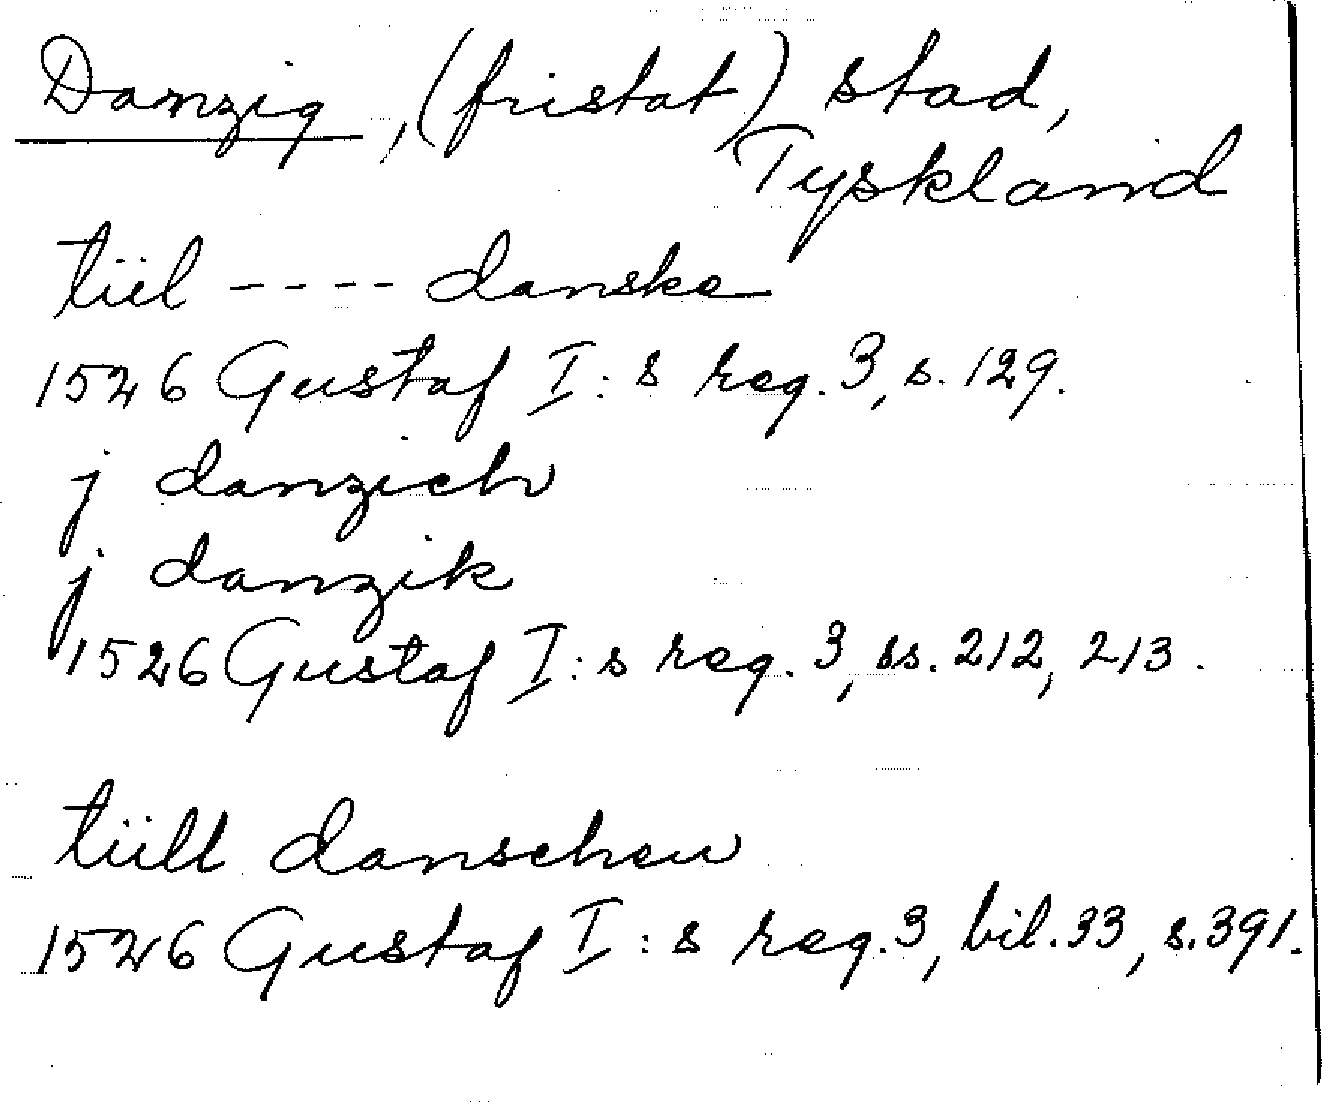 Danzig, (fristat) stad,
Tyskland
tiil ---- danske
1526 Gustaf I:s reg. 3, s. 129.
j danzich
j danzik
1526 Gustaf I:s reg. 3, ss. 212, 213.
tiill danscheu
1526 Gustaf I:s reg. 3, bil. 33, s. 391.